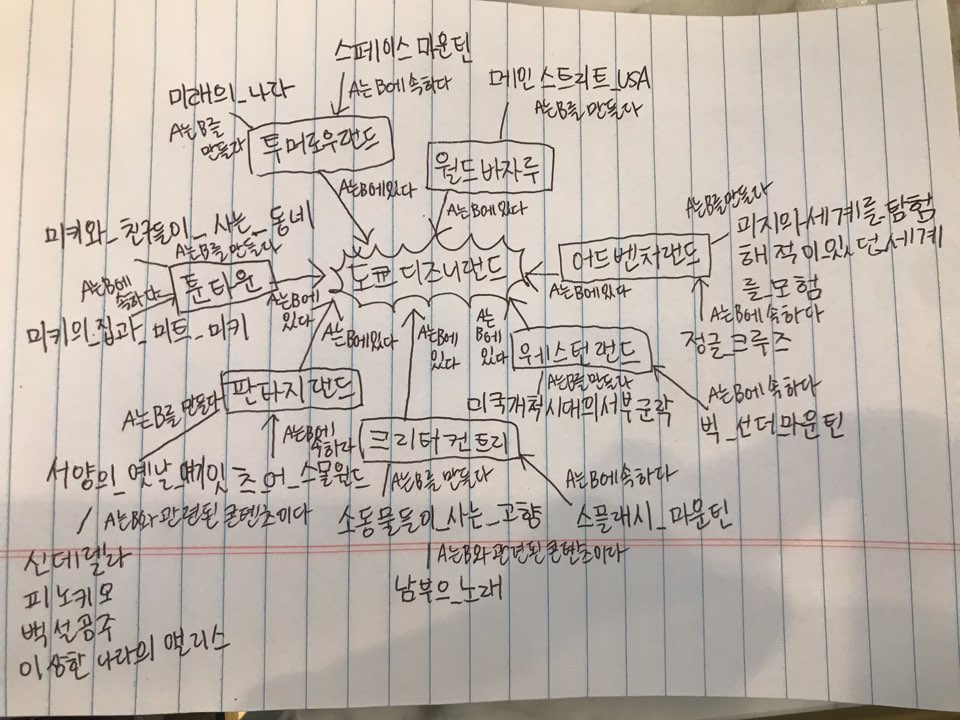 스페이스 마운틴
A는 B에 속하다
미래의_나라
A는 B를
만들다
투머로우랜드
메인 스트리트_USA
A는 B를 만들다
월드바자루
A는 B에 있다
A는 B에 있다
미키와_친구들이_사는_동네
A는 B를 만들다
툰타운
A는 B에
속하다
A는 B에
있다
미키의_집과_미트_미키
도쿄 디즈니랜드
어드벤처랜드
A는 B를 만들다
미지의 세계를 탐험
해적이 있던 세계
를_모험
A는 B에 있다
A는 B에 속하다
정글_크루즈
A는 B에 있다
판타지랜드
A는 B를 만들다
A는 B에
속하다
A는 B에
있다
크리터컨트리
A는
B에
있다
웨스턴랜드
A는 B를 만들다
미국개척시대의서부군락
A는 B에 속하다
빅_선더마운틴
서양의_옛날_얘기
잇츠_어_스몰월드
A는 B를 만들다
소동물들이_사는_고향
A는 B에 속하다
스플래시_마운틴
A는 B와 관련된 콘텐츠이다
신데렐라
피노키오
백설공주
이상한 나라의 앨리스
A는 B와 관련된 콘텐츠이다
남부으_노래